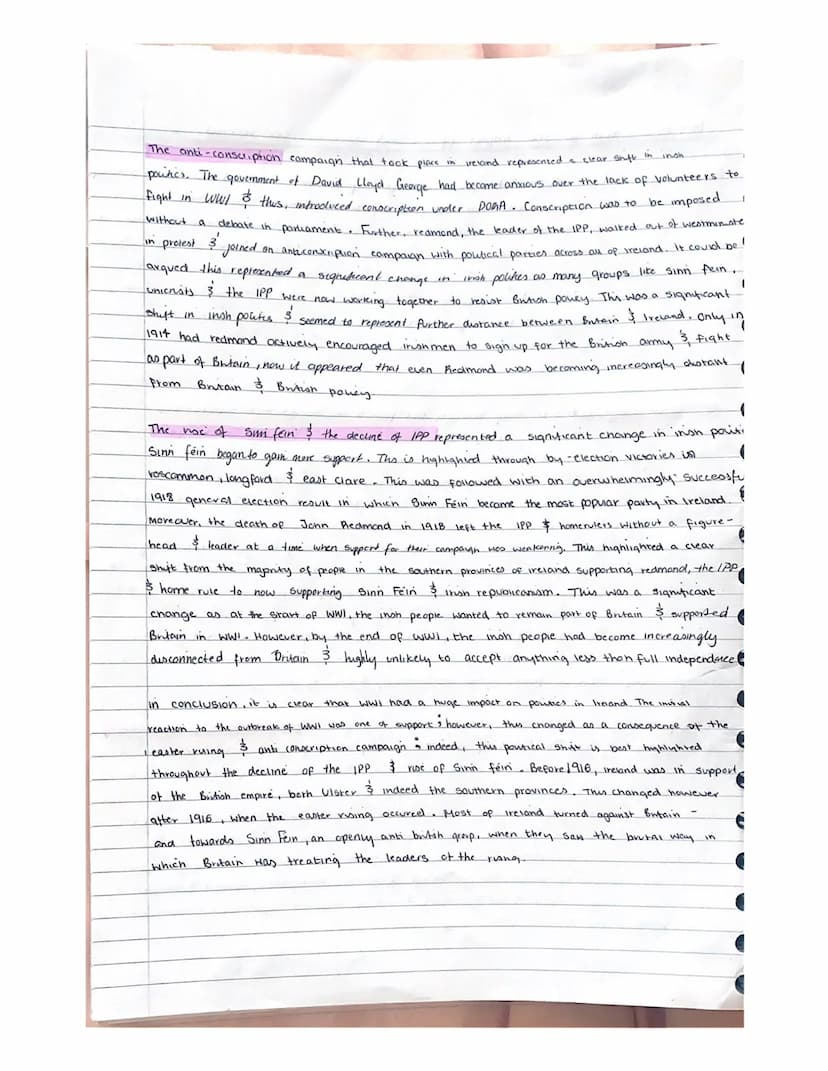 The anti-conscription campaign that took place in ireland represented a clear shift in irish
politics. The government of David Lloyd George had become anxious over the lack of volunteers to
fight in WWI & thus, introduced conscription under DORA. Conscription was to be imposed
without a debate in parliament. Further, redmond, the leader of the IPP, walked out of westminste
in protest & joined an anticonscription campaign with political parties across all of ireland. It could be
argued this represented a significant change in irish politics as many groups like sinn fein,
unionists & the IPP were now working together to resist British policy. This was a significant
shift in irish politics & seemed to represent further distance between Britain & Ireland. Only in
1914 had redmond actively encouraged irishmen to sign up for the British army & fight
as part of Britain, now it appeared that even Redmond was becoming increasingly distant
from Britain & British policy.
The rise of sinn fein & the decline of IPP represented a significant change in irish politi
Sinn féin began to gain more support. This is highlighted through by-election victories in
roscommon, longford & east clare. This was followed with an overwhelmingly successfu
1918 general election result in which Sinn Féin became the most popular party in Ireland.
Moreover, the death of John Redmond in 1918 left the IPP & homerulers without a figure-
head & leader at a time when support for their campaign was weakening. This highlighted a clear
shift from the majority of people in the southern provinces of ireland supporting redmond, the IPP
& home rule to now supporting Sinn Fein & irish republicanism. This was a significant
change as at the start of WWI, the irish people wanted to remain part of Britain & supported
Britain in WWI. However, by the end of WWI, the irish people had become increasingly
disconnected from Britain & highly unlikely to accept anything less than full independence
In conclusion, it is clear that WWI had a huge impact on politics in Ireland. The initial
reaction to the outbreak of WWI was one of support; however, this changed as a consequence of the
easter rising & anti conscription campaign; indeed, this political shift is best highlighted
throughout the decline of the IPP & rise of Sinn féin. Before 1916, ireland was in support
of the British empire, both Ulster & indeed the southern provinces. This changed however
after 1916, when the easter rising occured. Most of Ireland turned against Britain -
and towards Sinn Fein, an openly anti british group, when they saw the brutal way in
which Britain was treating the leaders of the rising.